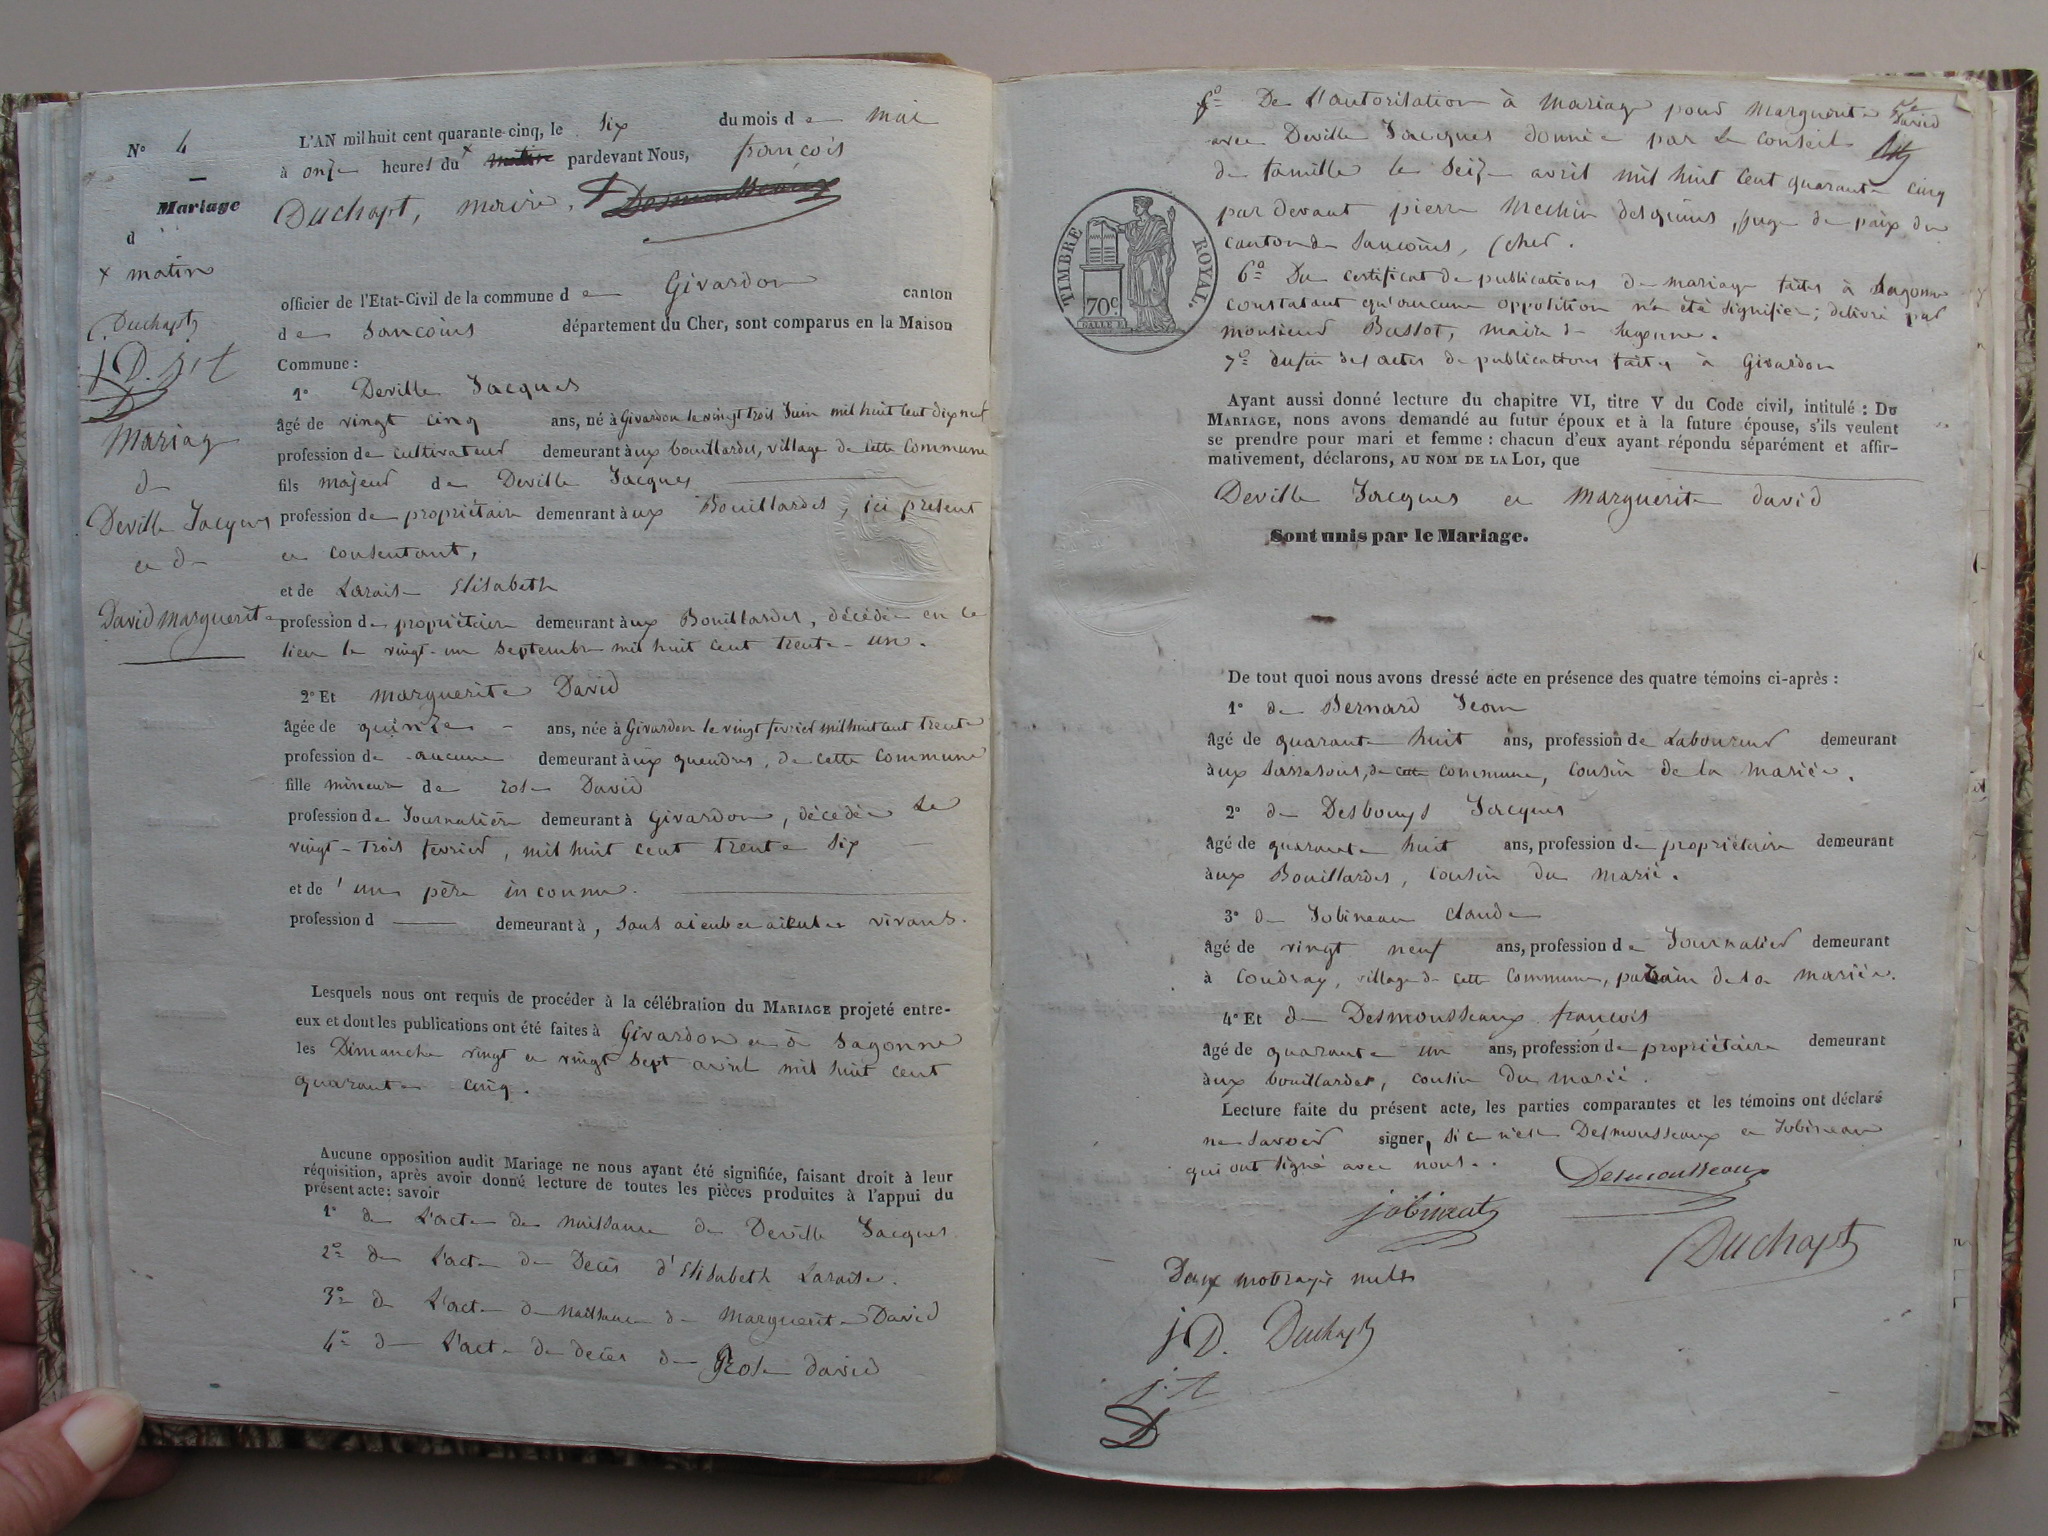 N° 4
Mariage
d
+ matin
Duchapt
J D.
Mariage
de
Deville Jacques
et de
David Marguerite
L'AN mil huit cent quarante-cinq, le six du mois de mai
à onze heures du + matin pardevant Nous, françois
Duchapt, maire, Desmousseaux
officier de l'Etat-Civil de la commune de Givardon canton
de Sancoins département du Cher, sont comparus en la Maison
Commune :
1° Deville Jacques
âgé de vingt cinq ans, né à Givardon le vingt trois Juin mil huit cent dix neuf
profession de cultivateur demeurant aux bouillardes, village de cette commune
fils majeur de Deville Jacques
profession de propriétaire demeurant aux Bouillardes, ici présent
et consentant,
et de Laraise Elisabeth
profession de propriétaire demeurant aux Bouillardes, décédée en ce
lieu le vingt-un septembre mil huit cent trente-un.
2° Et marguerite David
âgée de quinze ans, née à Givardon le vingt fevrier mil huit cent trente
profession de aucune demeurant aux queudres, de cette commune
fille mineure de rose David
profession de Journalière demeurant à Givardon, décédée le
vingt-trois fevrier, mil huit cent trente six
et de un père inconnu.
profession d demeurant à, sans aieul et aieules vivans.
Lesquels nous ont requis de procéder à la célébration du MARIAGE projeté entre-
eux et dont les publications ont été faites à Givardon et à Sagonne
les Dimanche vingt et vingt sept avril mil huit cent
quarante cinq.
Aucune opposition audit Mariage ne nous ayant été signifiée, faisant droit à leur
réquisition, après avoir donné lecture de toutes les pièces produites à l'appui du
présent acte: savoir
1° de L'acte de naissance de Deville Jacques
2° de L'acte de Decès d'Elisabeth Laraise.
3° de L'acte de naissance de Marguerite David
4° de L'acte de decès de Rose david
5° De L'autorisation à mariage pour Marguerite David
avec Deville Jacques donnée par le conseil
de famille le seize avril mil huit cent quarante cinq
par devant pierre Mechin desquins, Juge de paix du
canton de Sancoins, (cher.
6° Du certificat de publications de mariage faites à Sagonne
constatant qu'aucune opposition n'a été signifiée; délivré par
monsieur Bussot, maire de Sagonne.
7° enfin des actes de publications faites à Givardon
TIMBRE ROYAL.
70c.
Ayant aussi donné lecture du chapitre VI, titre V du Code civil, intitulé : DU
MARIAGE, nous avons demandé au futur époux et à la future épouse, s'ils veulent
se prendre pour mari et femme : chacun d'eux ayant répondu séparément et affir-
mativement, déclarons, AU NOM DE LA LOI, que
Deville Jacques et Marguerite david
Sont unis par le Mariage.
De tout quoi nous avons dressé acte en présence des quatre témoins ci-après :
1° de Bernard Jean
âgé de quarante huit ans, profession de Laboureur demeurant
aux Sarrasons, de cette commune, cousin de la mariée.
2° de Desbouys Jacques
âgé de quarante huit ans, profession de propriétaire demeurant
aux Bouillardes, cousin du marié.
3° de Jobineau claude
âgé de vingt neuf ans, profession de Journalier demeurant
à Coudray, village de cette commune, parrain de la mariée.
4° Et de Desmousseaux françois
âgé de quarante un ans, profession de propriétaire demeurant
aux bouillardes, cousin du marié.
Lecture faite du présent acte, les parties comparantes et les témoins ont déclaré
ne savoir signer, si ce n'est Desmousseaux et Jobineau
qui ont signé avec nous.
Desmousseaux
jobineau
Duchapt
Deux mots rayés nuls
J D. Duchapt